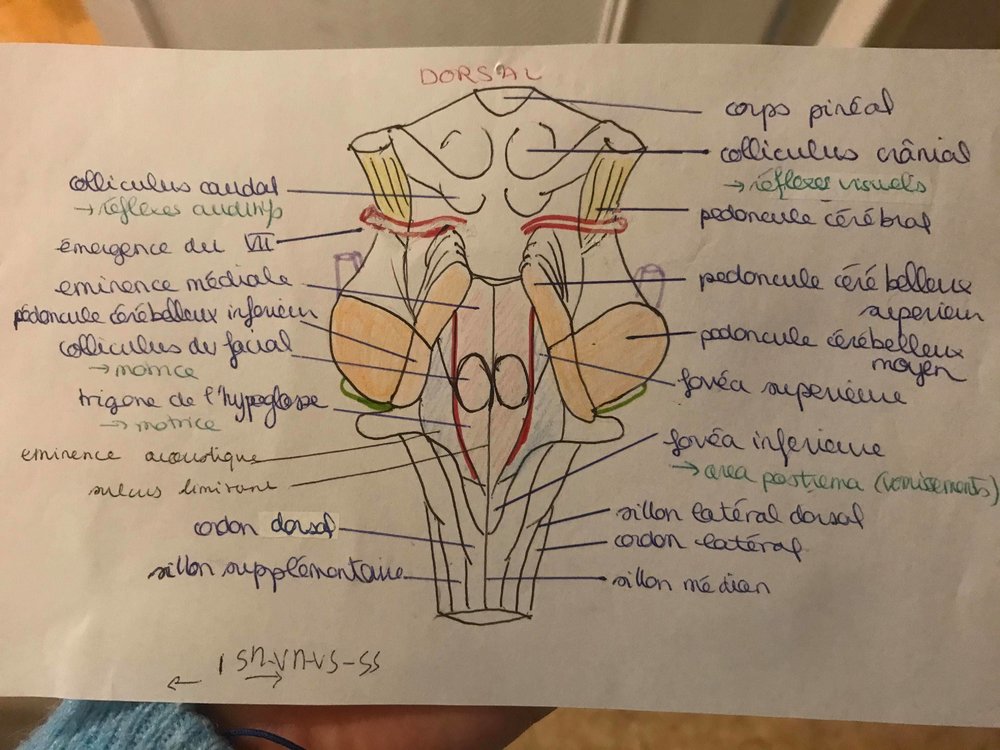 DORSAL
corps pinéal
colliculus crânial
→ réflexes visuels
pédoncule cérébral
pédoncule cérébelleux
superieur
pédoncule cérébelleux
moyen
fovéa superieure
fovéa inferieure
→ area postrema (vomissements)
sillon latéral dorsal
cordon latéral
sillon médian
colliculus caudal
→ réflexes auditifs
émergence du VII
eminence médiale
pédoncule cérébelleux inferieur
colliculus du facial
→ motrice
trigone de l'hypoglosse
→ motrice
eminence acoustique
sulcus limitant
cordon dorsal
sillon supplémentaire
sn-vn-vs-ss
← →